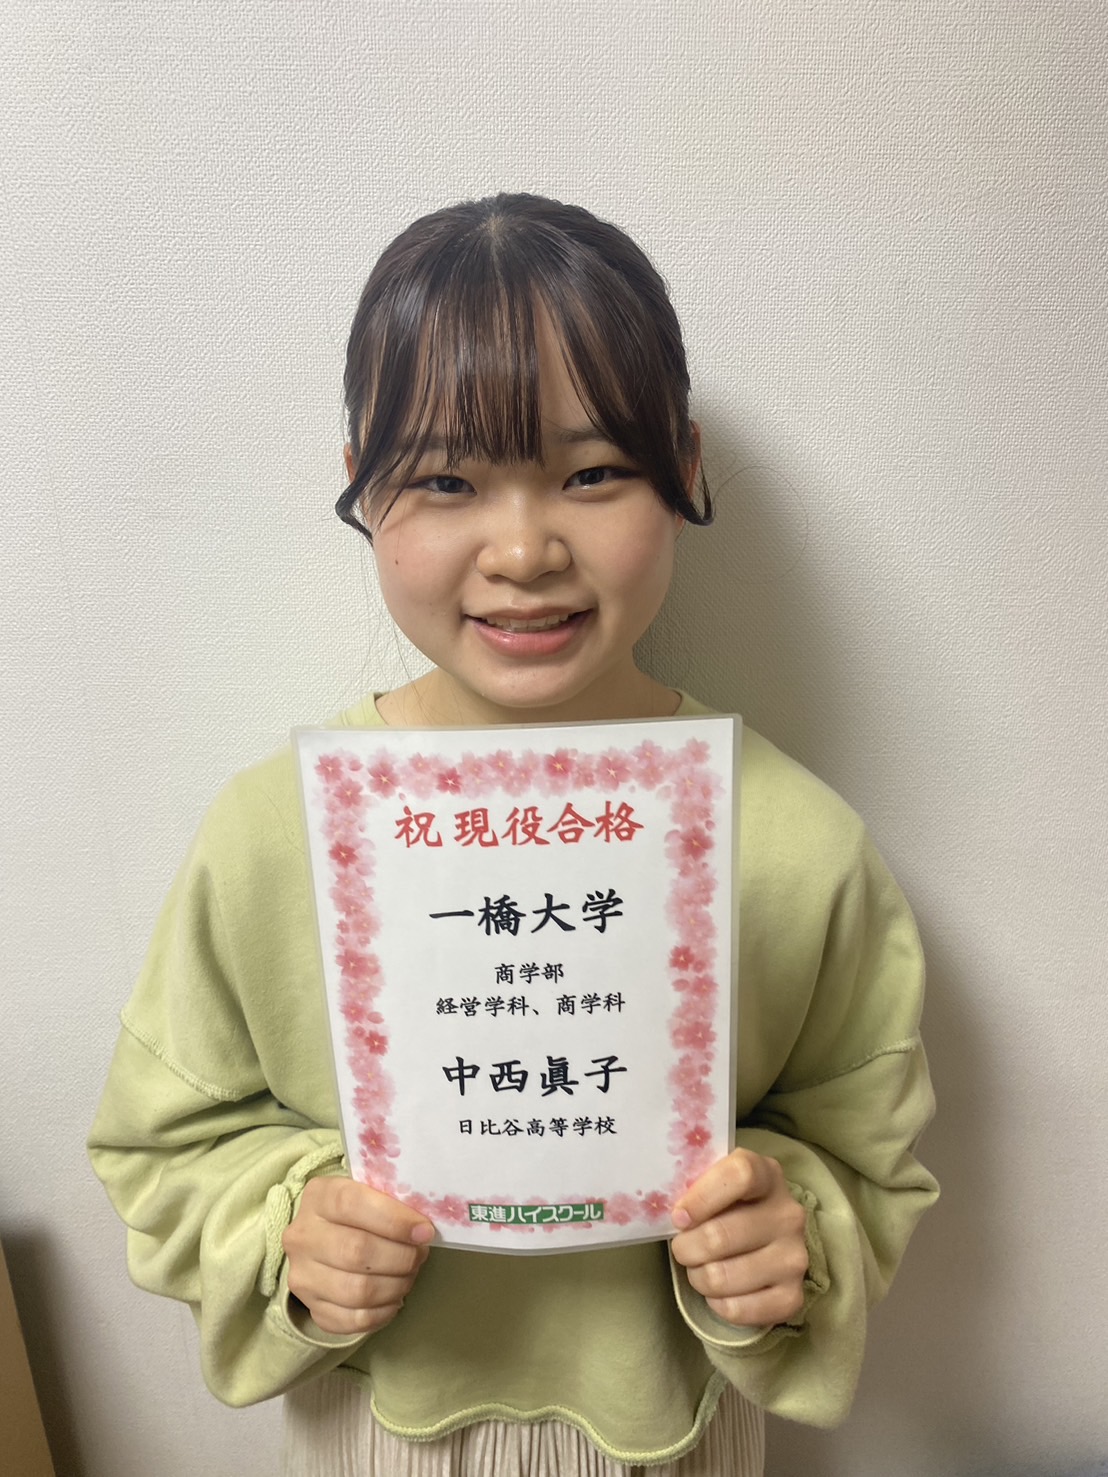 祝 現役合格
一橋大学
商学部
経営学科、商学科
中西眞子
日比谷高等学校
東進ハイスクール